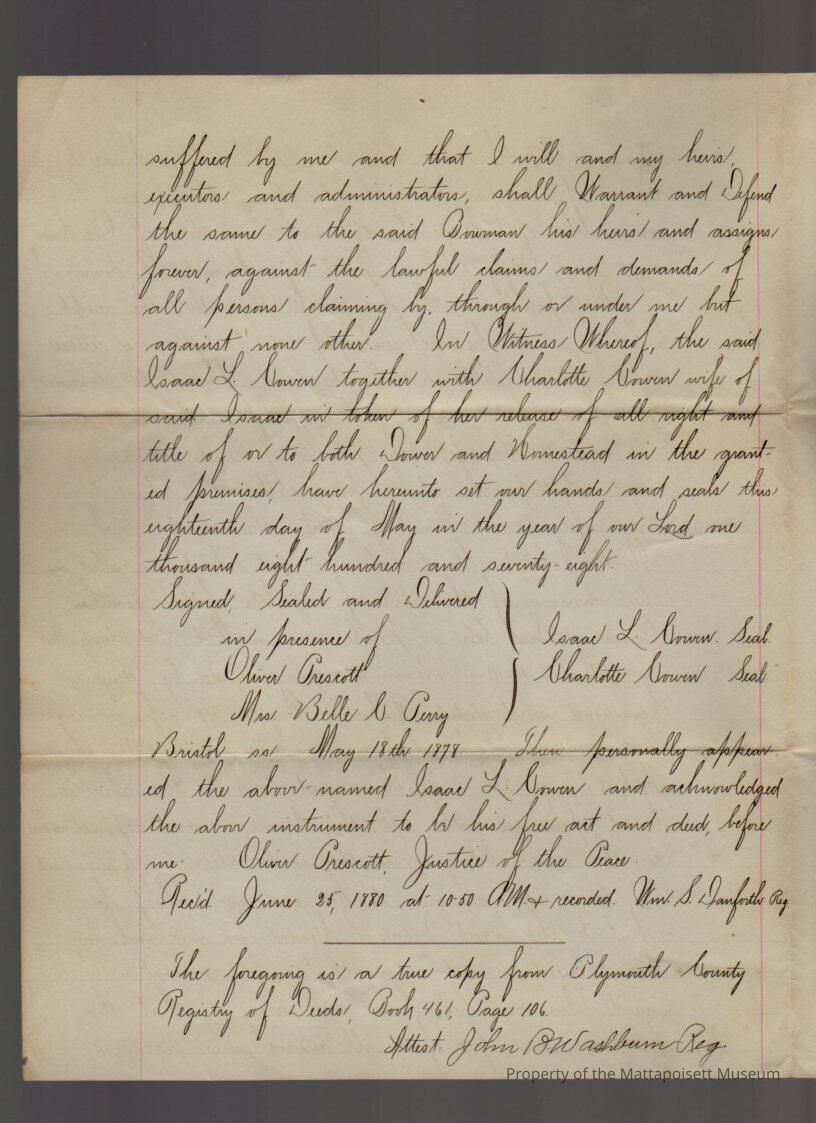 suffered by me and that I will and my heirs,
executors and administrators, shall Warrant and Defend
the same to the said Bowman his heirs and assigns
forever, against the lawful claims and demands of
all persons claiming by, through or under me but
against none other. In Witness Whereof, the said
Isaac L. Cowen together with Charlotte Cowen wife of
said Isaac in token of her release of all right and
title of or to both Dower and Homestead in the grant-
ed premises, have hereunto set our hands and seals this
eighteenth day of May in the year of our Lord one
thousand eight hundred and seventy-eight.
Signed, Sealed and Delivered
in presence of
Oliver Prescott
Mrs. Belle C. Perry
Isaac L. Cowen. Seal.
Charlotte Cowen Seal
Bristol ss May 18th 1878 Then personally appear-
ed the above-named Isaac L. Cowen and acknowledged
the above instrument to be his free act and deed, before
me. Oliver Prescott, Justice of the Peace.
Rec'd. June 25, 1880 at 10-50 A.M. & recorded. Wm. S. Danforth. Reg
The foregoing is a true copy from Plymouth County
Registry of Deeds, Book 461, Page 106.
Attest. John B Washburn Reg.
Property of the Mattapoisett Museum